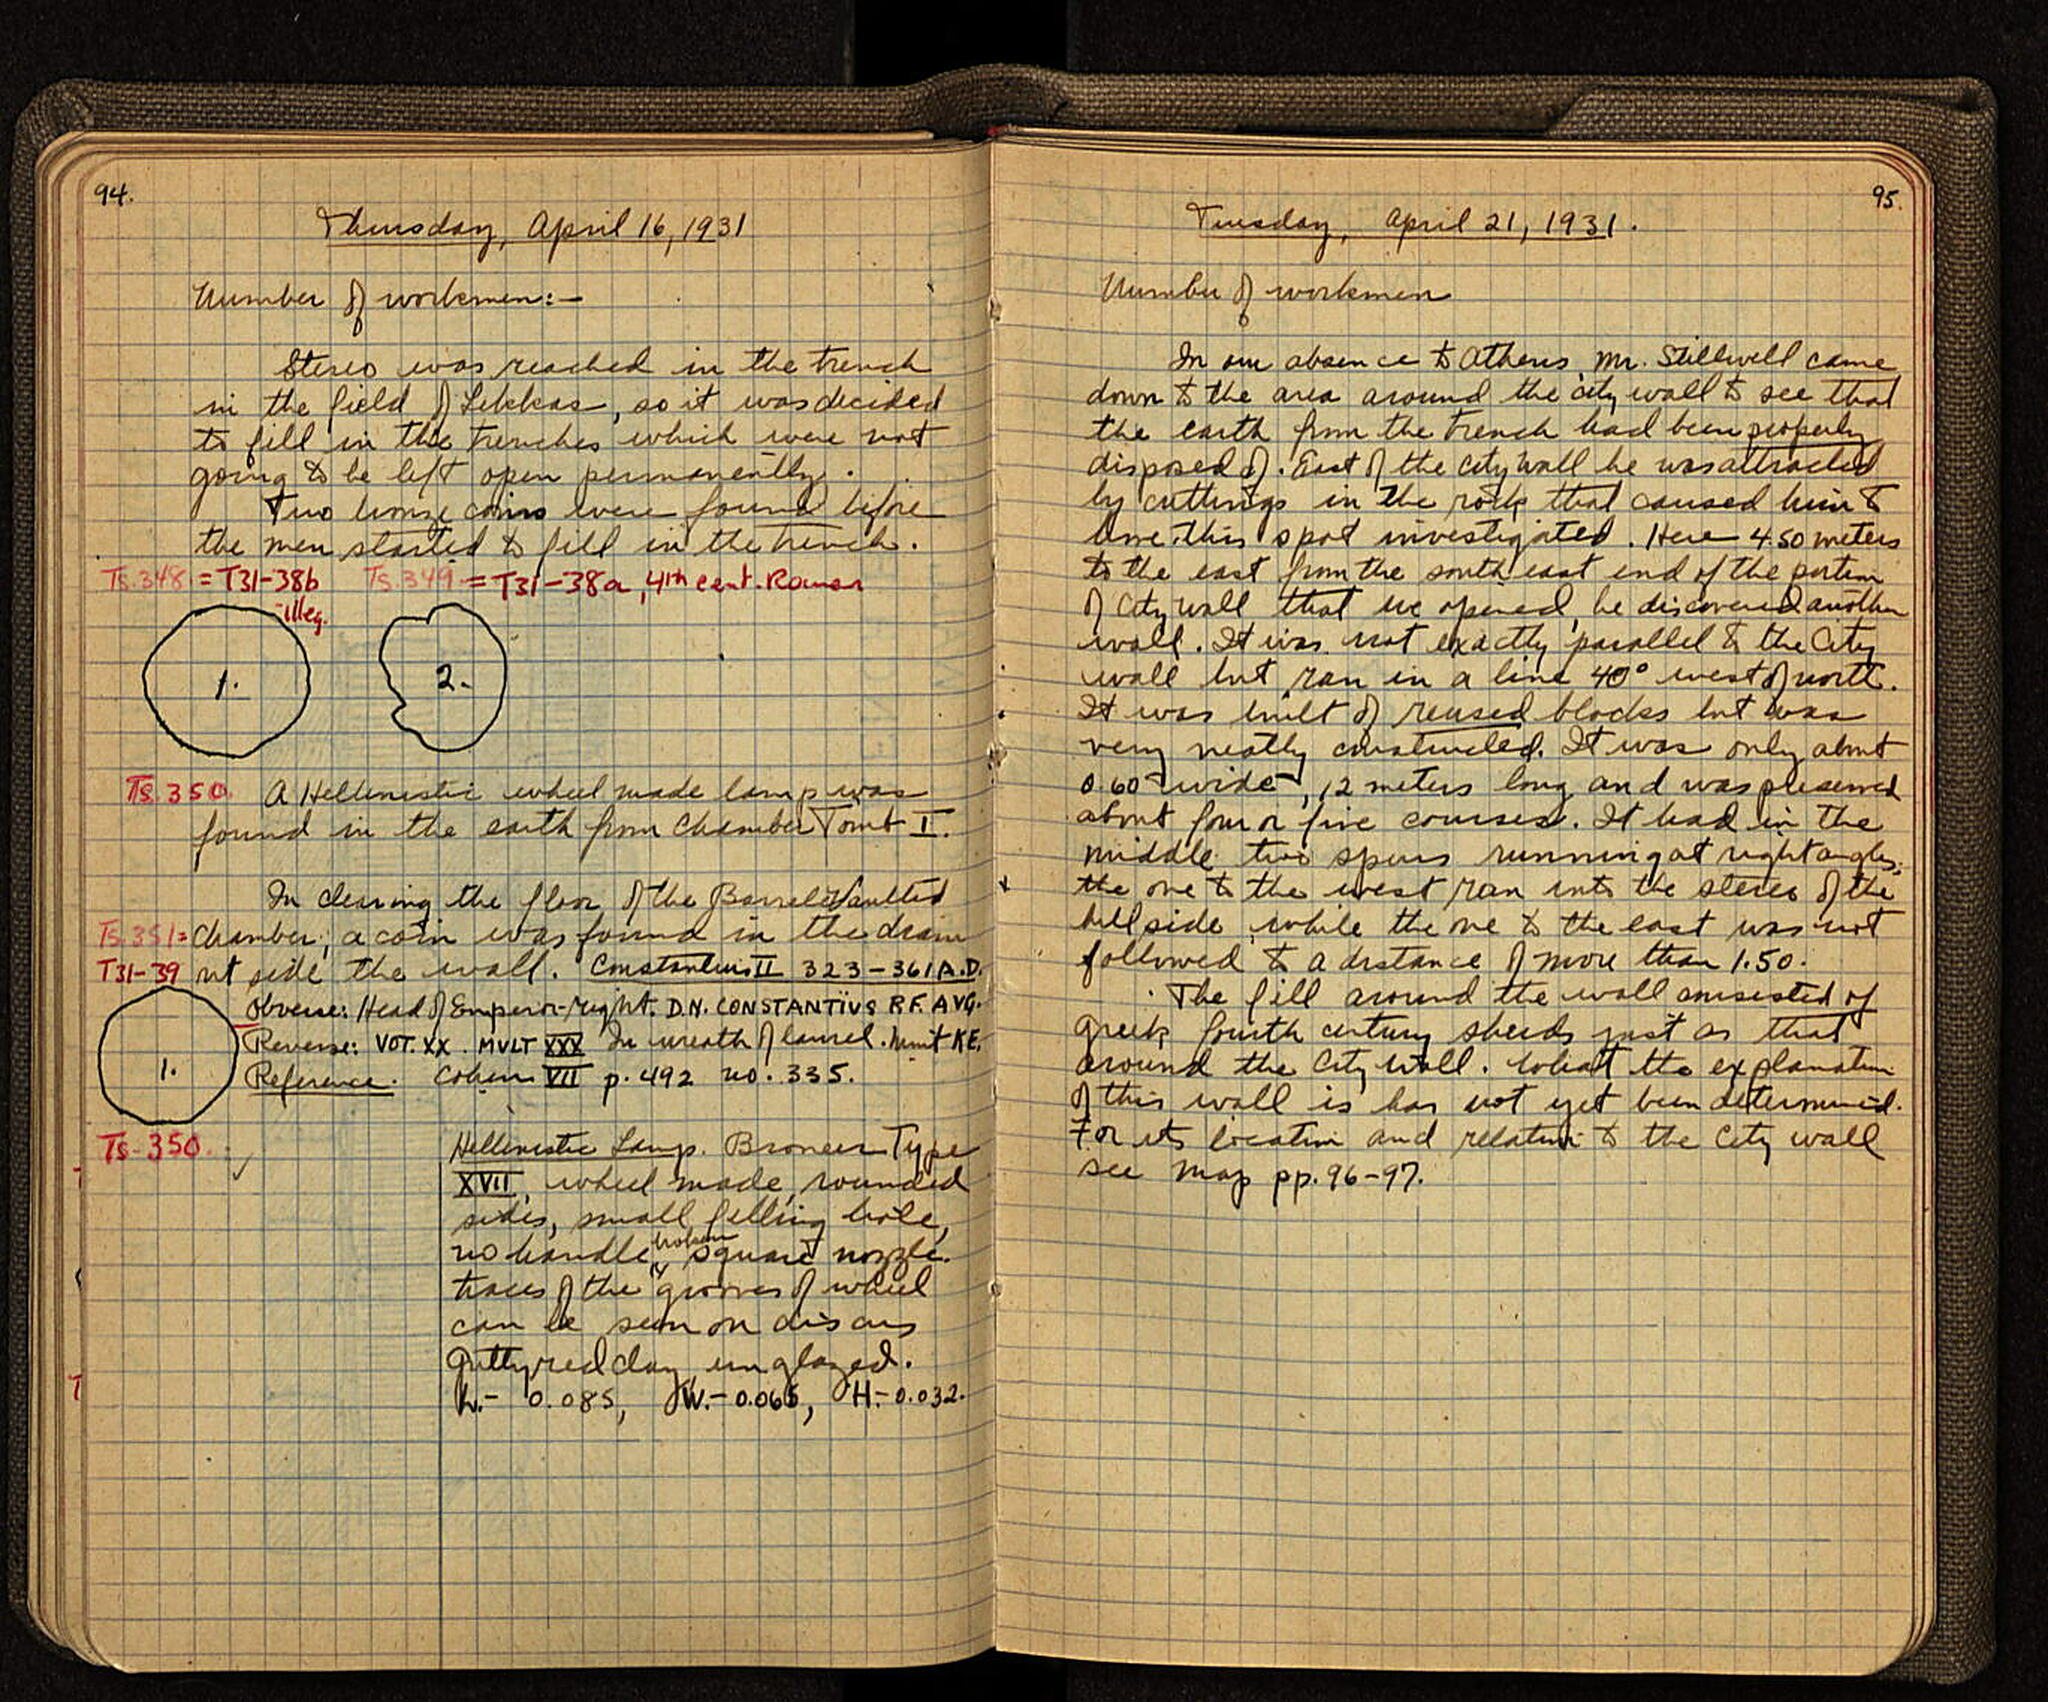 94.
Thursday, April 16, 1931
Number of workmen:-
Stereo was reached in the trench
in the field of Lekkas, so it was decided
to fill in the trenches which were not
going to be left open permanently.
Two bronze coins were found before
the men started to fill in the trench.
Ts.348 = T31-38b
-illeg.
Ts.349 = T31-38a, 4th cent. Roman
1.
2.
Ts.350. A Hellenistic wheel made lamp was
found in the earth from Chamber Tomb I.
In clearing the floor of the Barrel Vaulted
Ts.351= Chamber, a coin was found in the drain
T31-39 out side the wall. Constantius II 323-361 A.D.
Obverse: Head of Emperor-right. D.N. CONSTANTIVS P.F. AVG.
Reverse: VOT. XX. MVLT XXX In wreath of laurel. Mint KE.
1.
Reference. Cohen VII p. 492 no. 335.
Ts-350.
Hellenistic Lamp. Broneer Type
XVII, wheel made, rounded
sides, small filling hole,
no handle, broken square nozzle.
traces of the grooves of wheel
can be seen on discus
Gritty red clay, unglazed.
L.- 0.085, W.- 0.065, H.- 0.032.
95.
Tuesday, April 21, 1931.
Number of workmen
In our absence to Athens, Mr. Stillwell came
down to the area around the city wall to see that
the earth from the trench had been properly
disposed of. East of the city wall he was attracted
by cuttings in the rock that caused him to
have this spot investigated. Here 4.50 meters
to the east from the south east end of the portion
of city wall that we opened, he discovered another
wall. It was not exactly parallel to the City
wall but ran in a line 40° west of north.
It was built of reused blocks but was
very neatly constructed. It was only about
0.60 wide, 12 meters long and was preserved
about four or five courses. It had in the
middle two spurs running at right angles,
the one to the west ran into the stereo of the
hillside while the one to the east was not
followed to a distance of more than 1.50.
The fill around the wall consisted of
Greek fourth century sherds just as that
around the City wall. What the explanation
of this wall is has not yet been determined.
For its location and relation to the City wall
see map pp. 96-97.